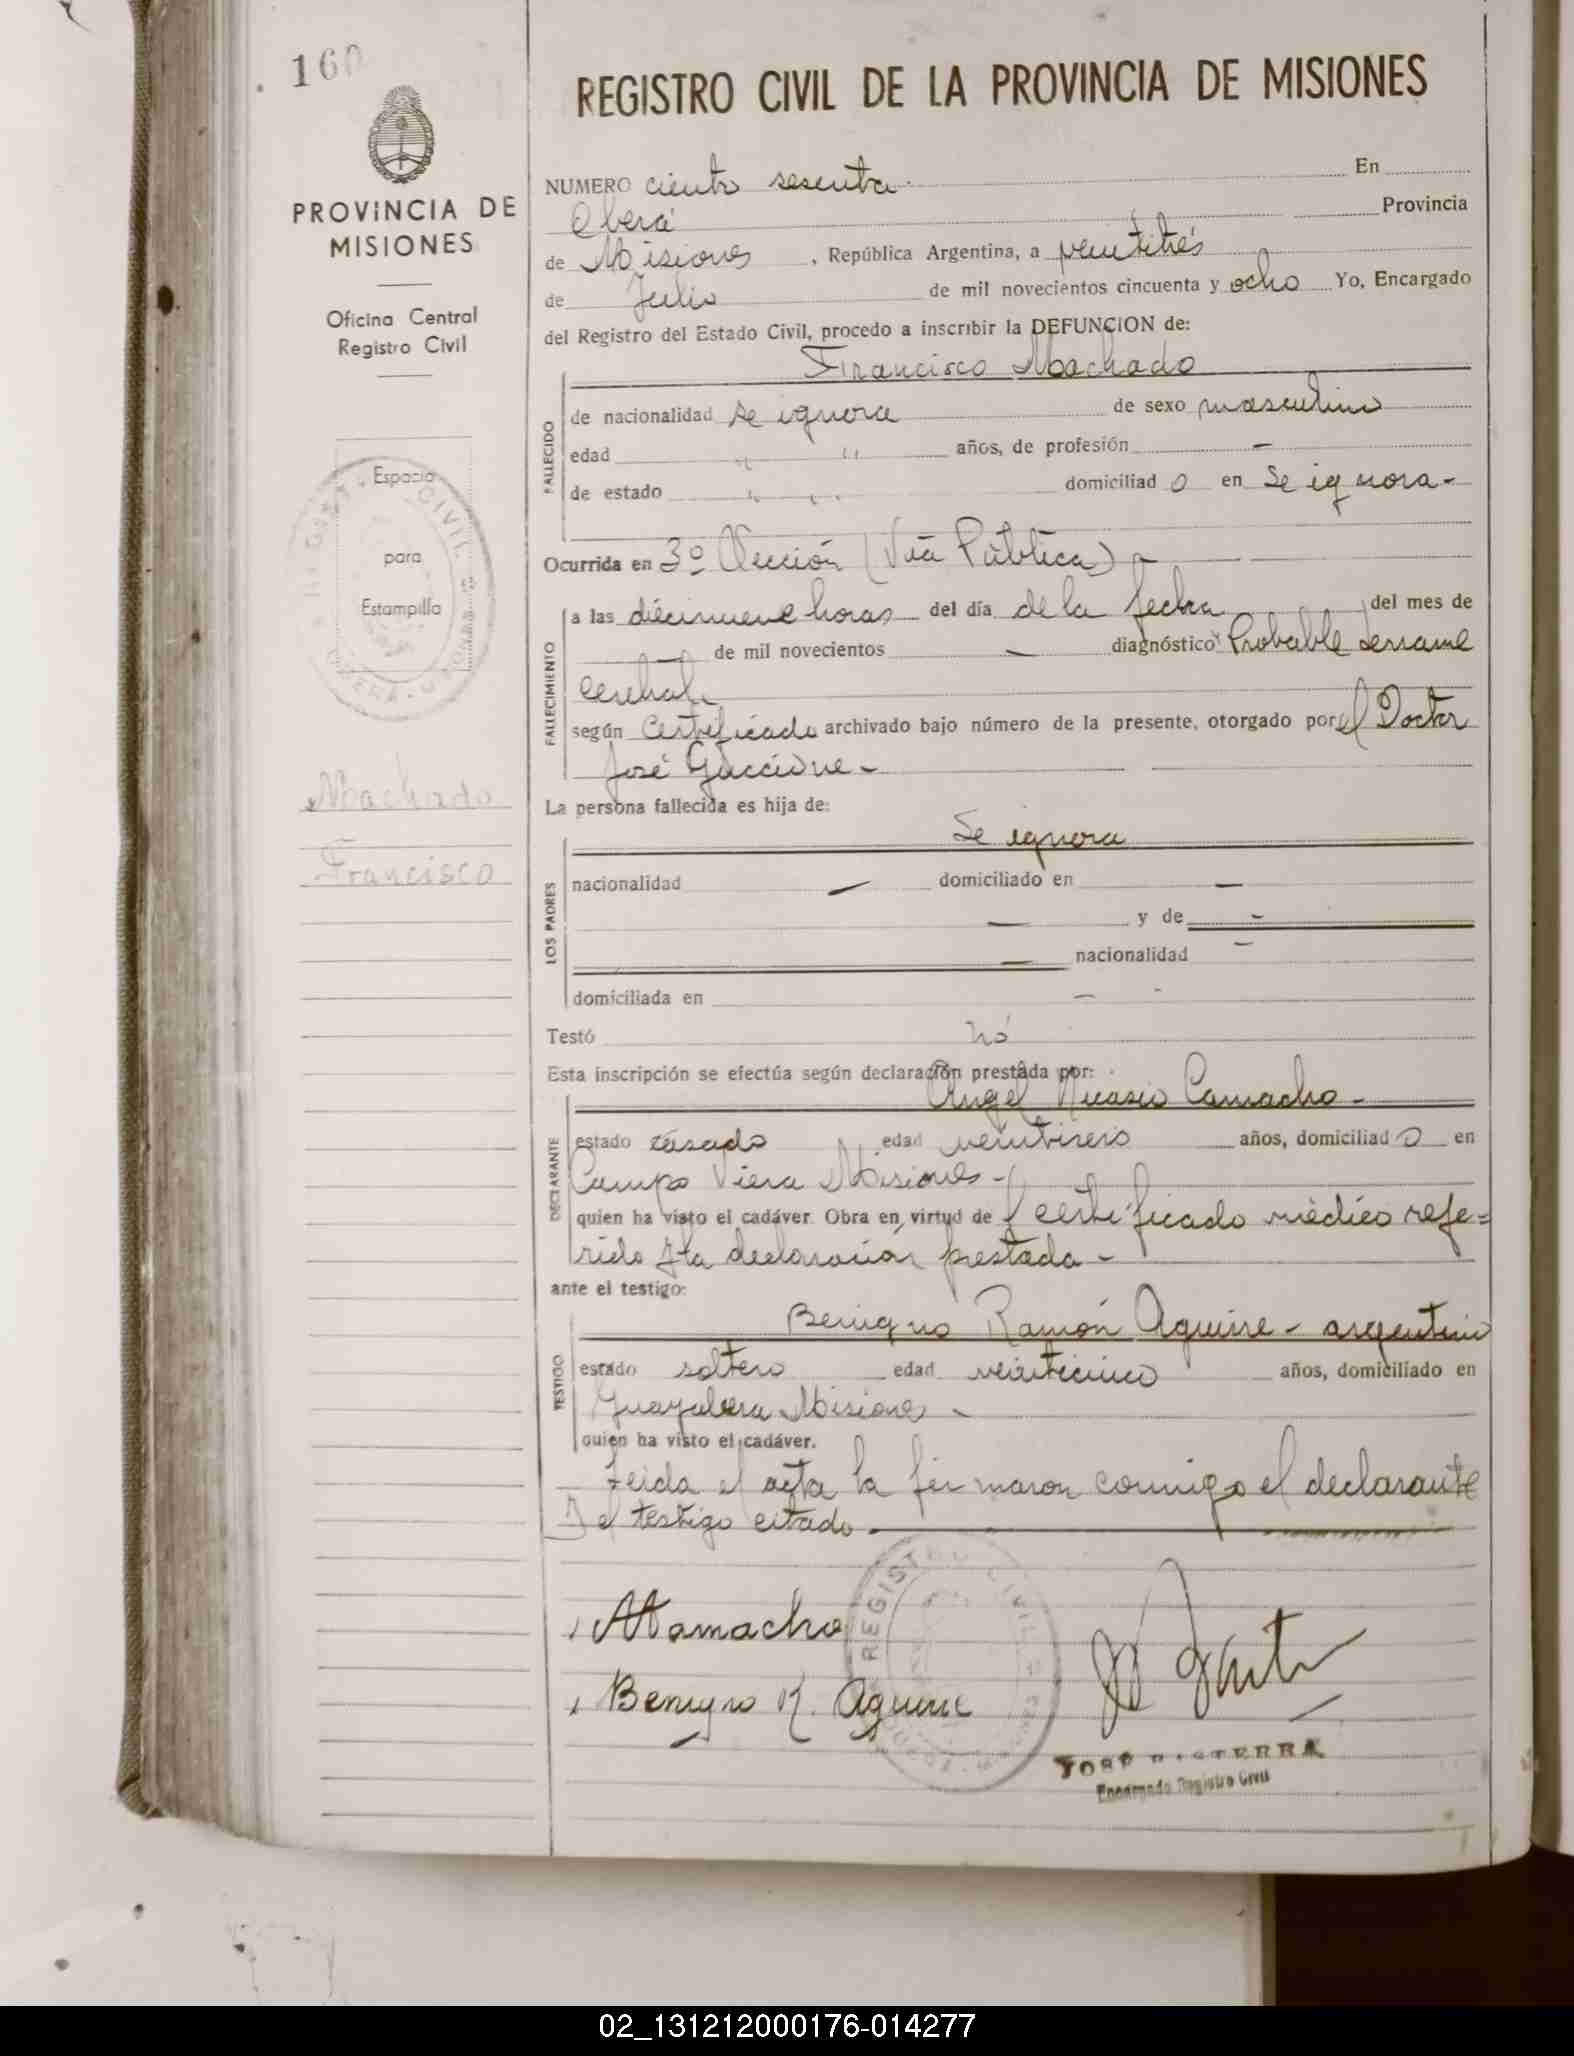 160
PROVINCIA DE
MISIONES
Oficina Central
Registro Civil
Espacio
para
Estampilla
REGISTRO CIVIL
OBERA - MISIONES
Machado
Francisco
REGISTRO CIVIL DE LA PROVINCIA DE MISIONES
NUMERO ciento sesenta. En
Oberá Provincia
de Misiones, República Argentina, a veintitrés
de Julio de mil novecientos cincuenta y ocho Yo, Encargado
del Registro del Estado Civil, procedo a inscribir la DEFUNCION de:
Francisco Machado
FALLECIDO
de nacionalidad se ignora de sexo masculino
edad " " años, de profesión -
de estado " " domiciliado en Se ignora-
Ocurrida en 3º Sección (Vía Pública) -
FALLECIMIENTO
a las diecinueve horas del día de la fecha del mes de
— de mil novecientos — diagnóstico Probable derrame
cerebral.
según Certificado archivado bajo número de la presente, otorgado por el Doctor
José Guccione-
La persona fallecida es hija de:
Se ignora
LOS PADRES
nacionalidad — domiciliado en —
— y de -
— nacionalidad -
domiciliada en -
Testó nó
Esta inscripción se efectúa según declaración prestada por:
Angel Nicasio Camacho-
DECLARANTE
estado casado edad veintiseis años, domiciliado en
Campo Viera Misiones-
quien ha visto el cadáver. Obra en virtud del certificado médico refe=
rido y la declaración prestada-
ante el testigo:
Benigno Ramón Aguirre - argentino
TESTIGO
estado soltero edad veinticinco años, domiciliado en
Guayabera Misiones-
quien ha visto el cadáver.
Leida el acta la firmaron conmigo el declarante
y el testigo citado.
Camacho
Benigno R. Aguirre
REGISTRO CIVIL
JOSÉ
Encargado Registro Civil
02_131212000176-014277